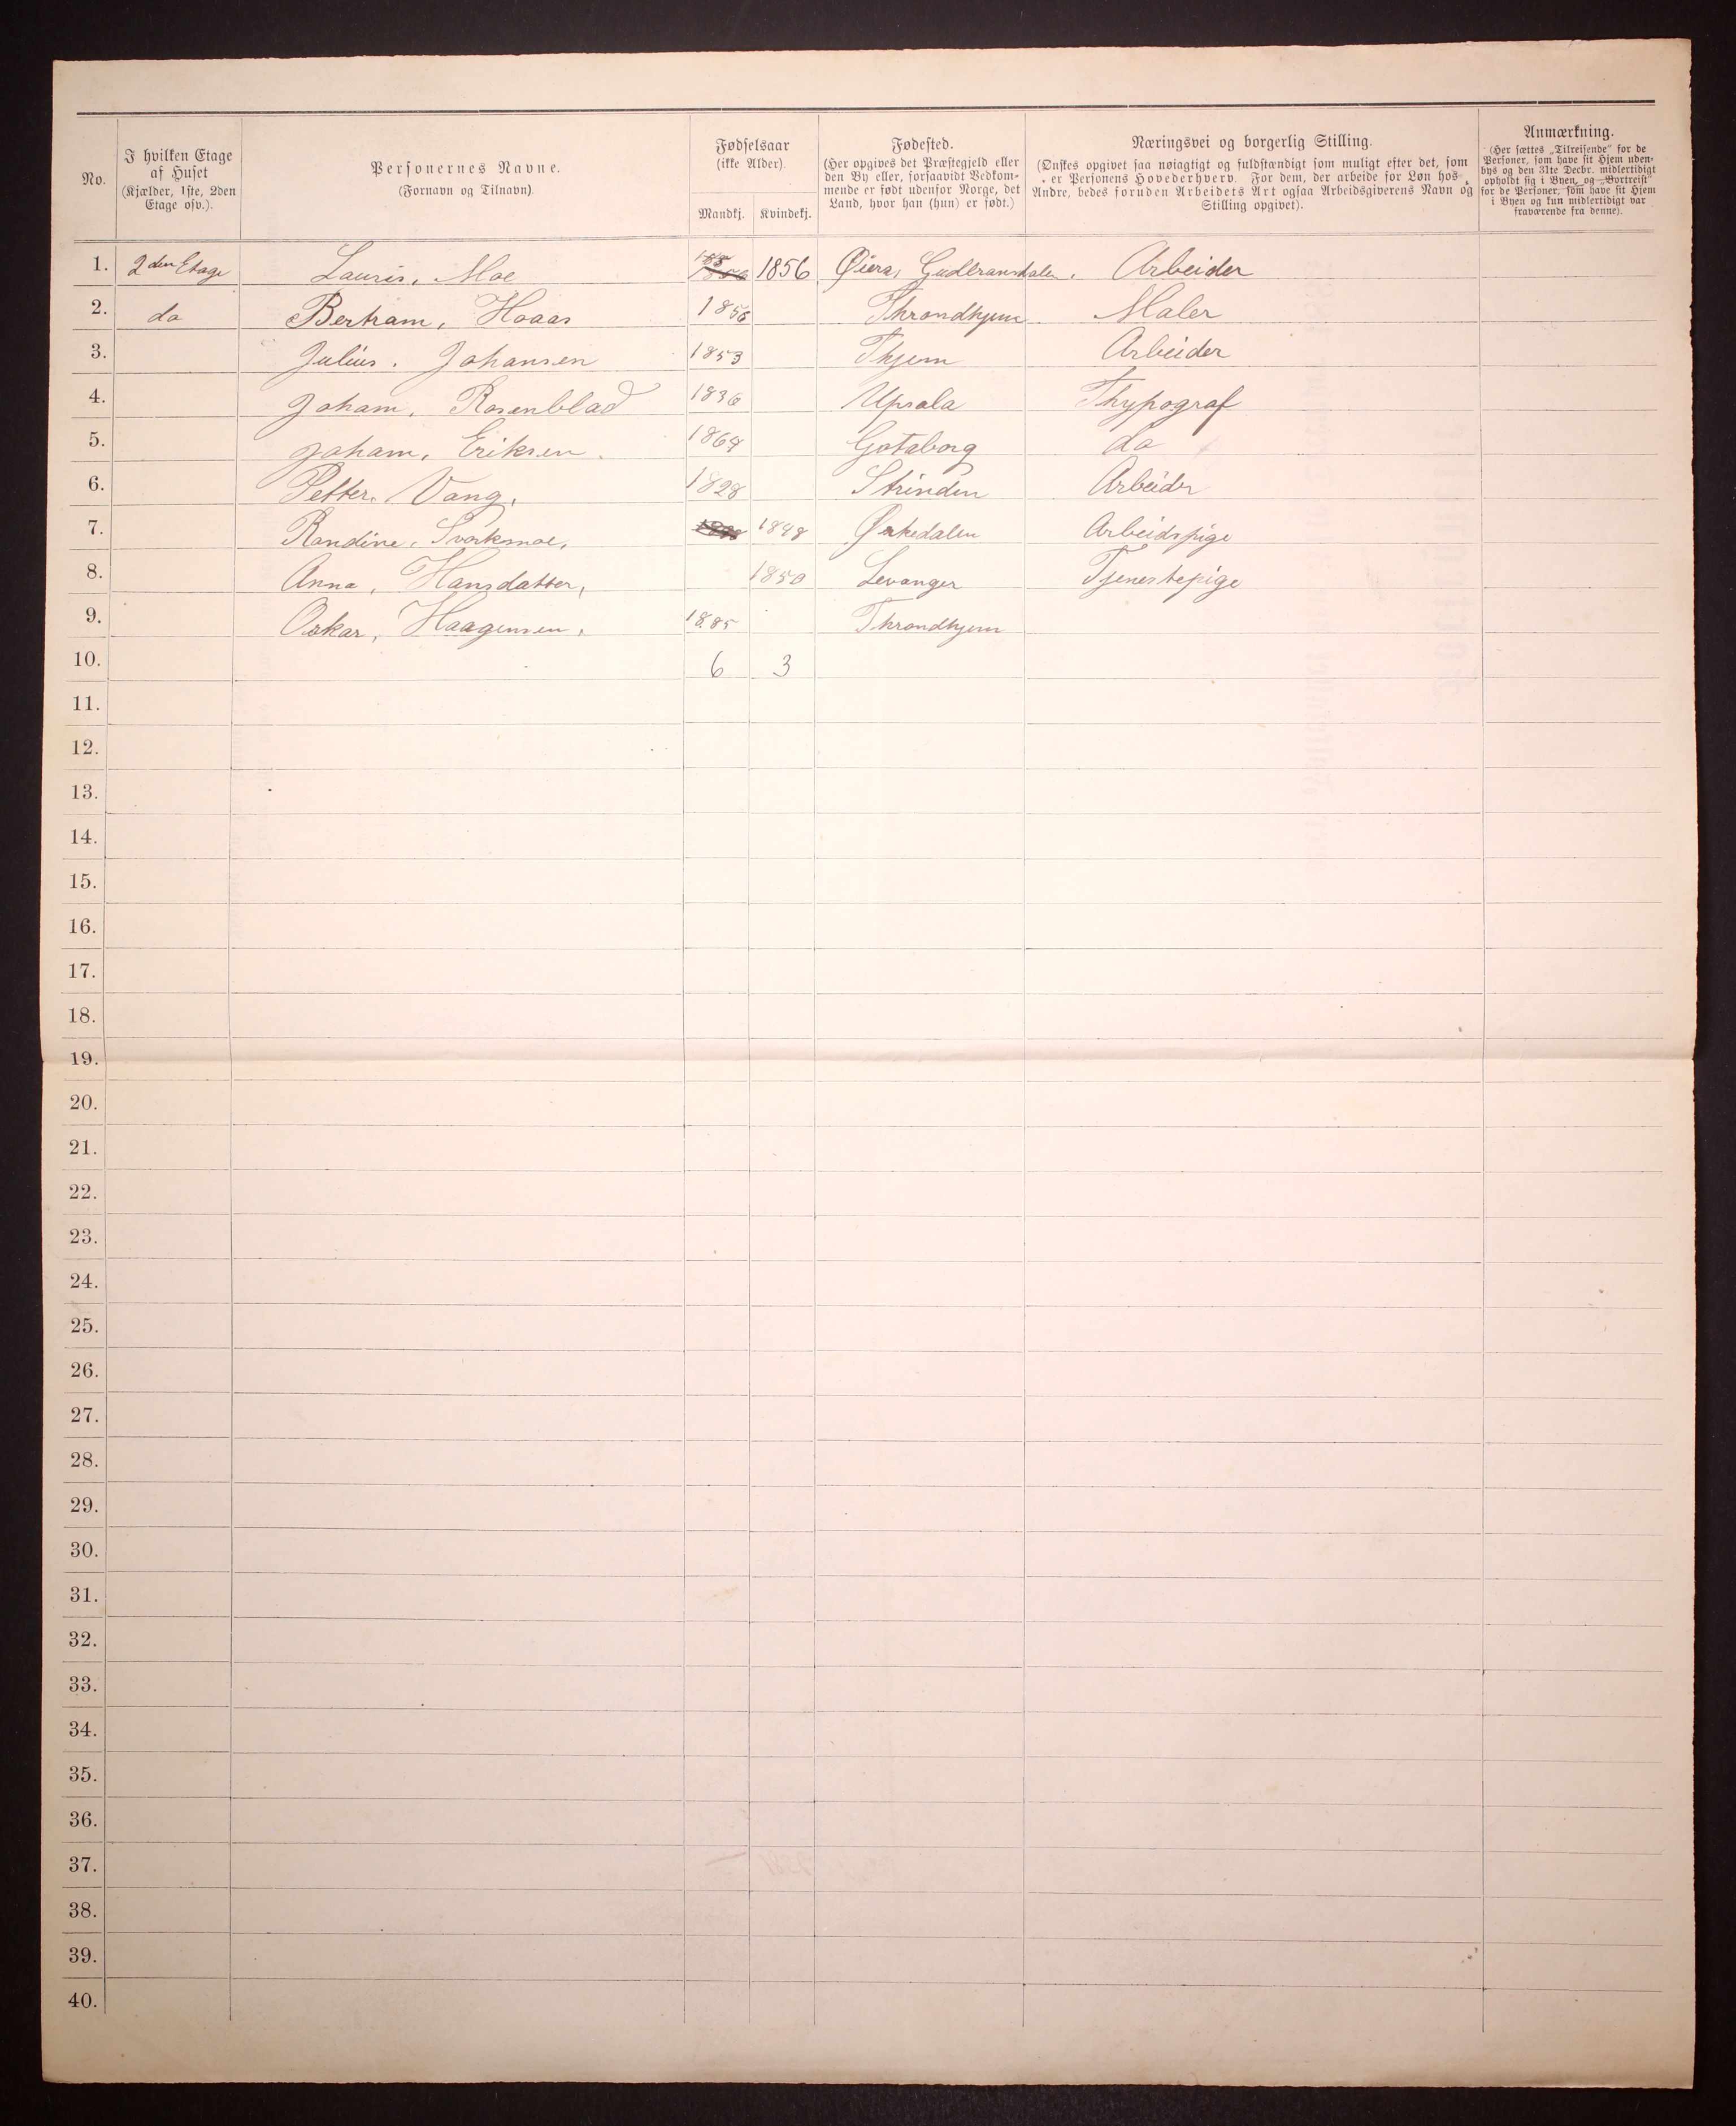 No.
I hvilken Etage
af Huset
(Kjælder, 1ste, 2den
Etage osv.).
Personernes Navne.
(Fornavn og Tilnavn).
Fødselsaar
(ikke Alder).
Mandkj. Kvindekj.
Fødested.
(Her opgives det Præstegjeld eller
den By eller, forsaavidt Vedkom-
mende er født udenfor Norge, det
Land, hvor han (hun) er født.)
Næringsvei og borgerlig Stilling.
(Ønskes opgivet saa nøiagtigt og fuldstændigt som muligt efter det, som
er Personens Hovederhverv. For dem, der arbeide for Løn hos
Andre, bedes foruden Arbeidets Art ogsaa Arbeidsgiverens Navn og
Stilling opgivet).
Anmærkning.
(Her sættes „Tilreisende" for de
Personer, som have sit Hjem uden-
bys og den 31te Decbr. midlertidigt
opholdt sig i Byen, og „Bortreist"
for de Personer, som have sit Hjem
i Byen og kun midlertidigt var
fraværende fra denne).
1. 2den Etage Lauris, Moe 1856 Øiera, Gudbransdalen. Arbeider
2. do Bertram, Hoaas 1856 Throndhjem Maler
3. Julius. Johansen 1853 Thjem Arbeider
4. Joham, Rosenblad 1836 Upsala Thypograf
5. Joham, Eriksen. 1864 Gotaborg do
6. Petter. Vang, 1828 Strinden Arbeider
7. Randine, Svorkmoe, 1848 Ørkedalen Arbeidspige
8. Anna, Hansdatter, 1850 Levanger Tjenestepige
9. Oskar, Haagensen, 1885 Throndhjem
10. 6 3
11.
12.
13.
14.
15.
16.
17.
18.
19.
20.
21.
22.
23.
24.
25.
26.
27.
28.
29.
30.
31.
32.
33.
34.
35.
36.
37.
38.
39.
40.